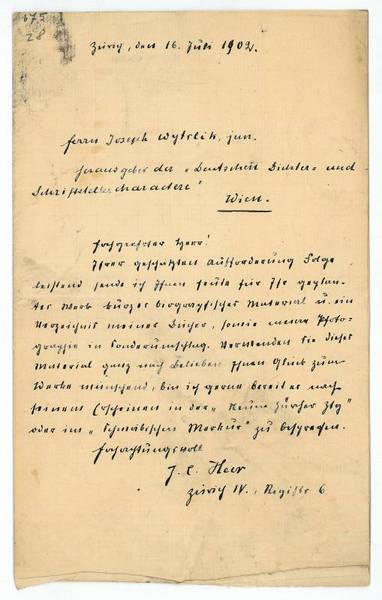 675
28
Zürich, den 16. Juli 1902.
Herrn Joseph Wytrlik, jun.
Herausgeber der „Deutschen Dichter- und
Schriftsteller Charactere"
Wien.
Hochgeehrter Herr!
Ihrer geschätzten Aufforderung Folge
leistend sende ich Ihnen heute für Ihr geplan-
tes Werk kurzes biografisches Material u. ein
Verzeichnis meiner Bücher, sowie meine Photo-
graphie in Sonderumschlag. Verwenden Sie dieses
Material ganz nach Belieben. Ihnen Glück zum
Werke wünschend, bin ich gerne bereit es nach
seinem Erscheinen in der „Neuen Zürcher Ztg"
oder im „Schwäbischen Merkur" zu besprechen.
Hochachtungsvoll
J. C. Heer
Zürich IV., 6